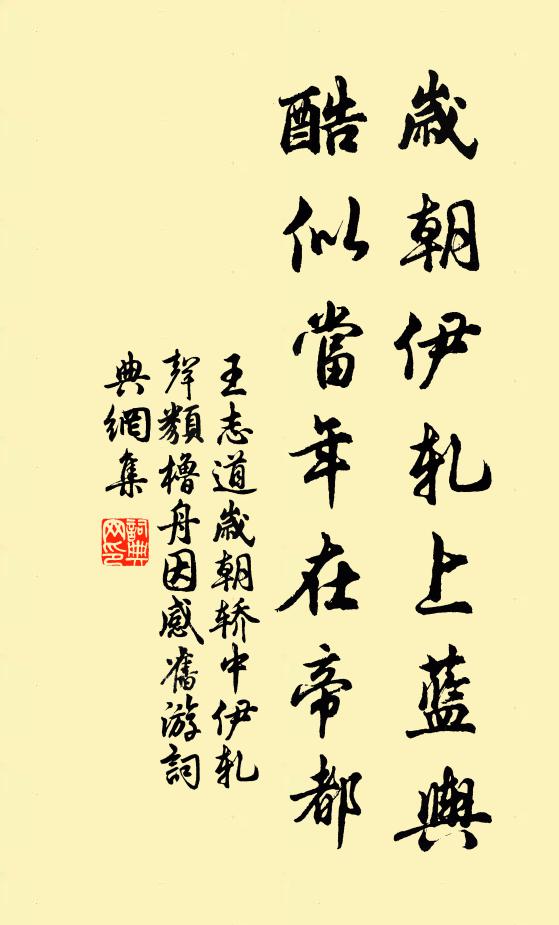 歲朝伊軋上藍輿
酷似當年在帝都
王志道歲朝轿中伊軋
聲類櫓舟因感舊游詞
典網集
詞典網印